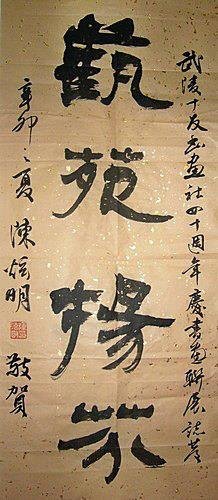 武陵十友書畫社四十週年慶書畫聯展誌慶
蓺苑揚芬
辛卯之夏 陳 明 敬賀